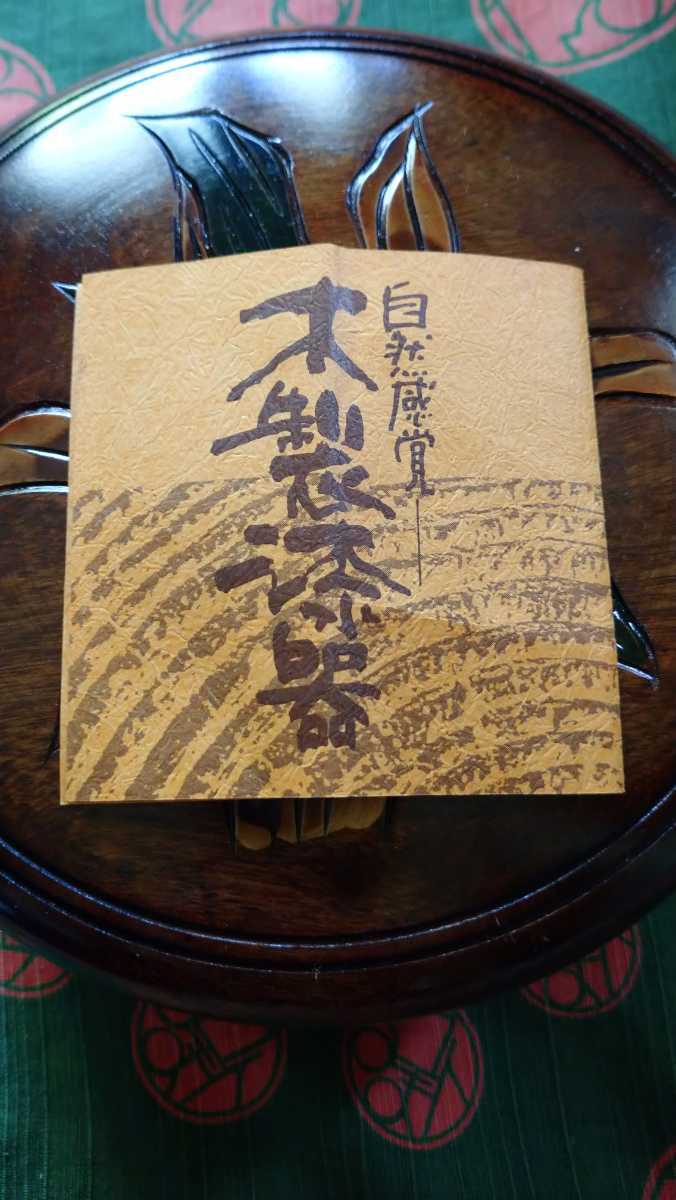 自然感覚
木製漆器